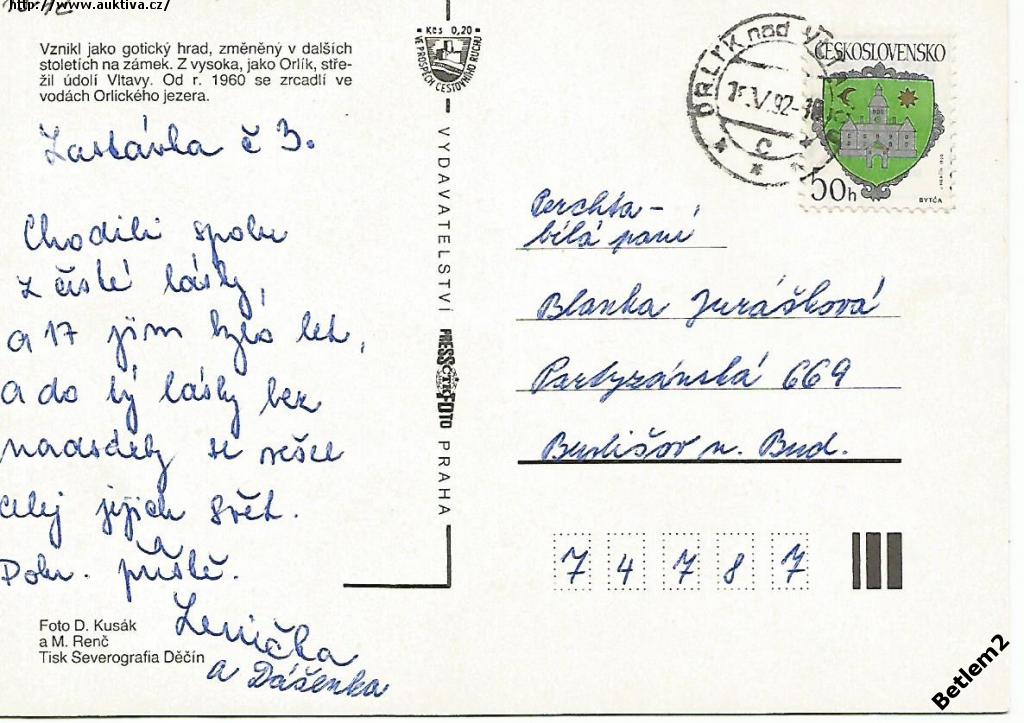 http://www.auktiva.cz/
Vznikl jako gotický hrad, změněný v dalších
stoletích na zámek. Z vysoka, jako Orlík, stře-
žil údolí Vltavy. Od r. 1960 se zrcadlí ve
vodách Orlického jezera.
Zastávka č 3.
Chodili spolu
z čisté lásky,
a 17 jim bylo let,
a do tý lásky bez
nadsázky se vešel
celej jejich svět.
Pokr. příště.
Lenička
a Dášenka
Foto D. Kusák
a M. Renč
Tisk Severografia Děčín
Kčs 0,20
VE PROSPĚCH CESTOVNÍHO RUCHU
VYDAVATELSTVÍ PRESSFOTO PRAHA
ČTK
ORLÍK nad
15.V.92-
C
ČESKOSLOVENSKO
50h
BYTČA
Perchta-
bílá paní
Blanka Jurášková
Partyzánská 669
Budišov n. Bud.
7 4 7 8 7
Betlem2